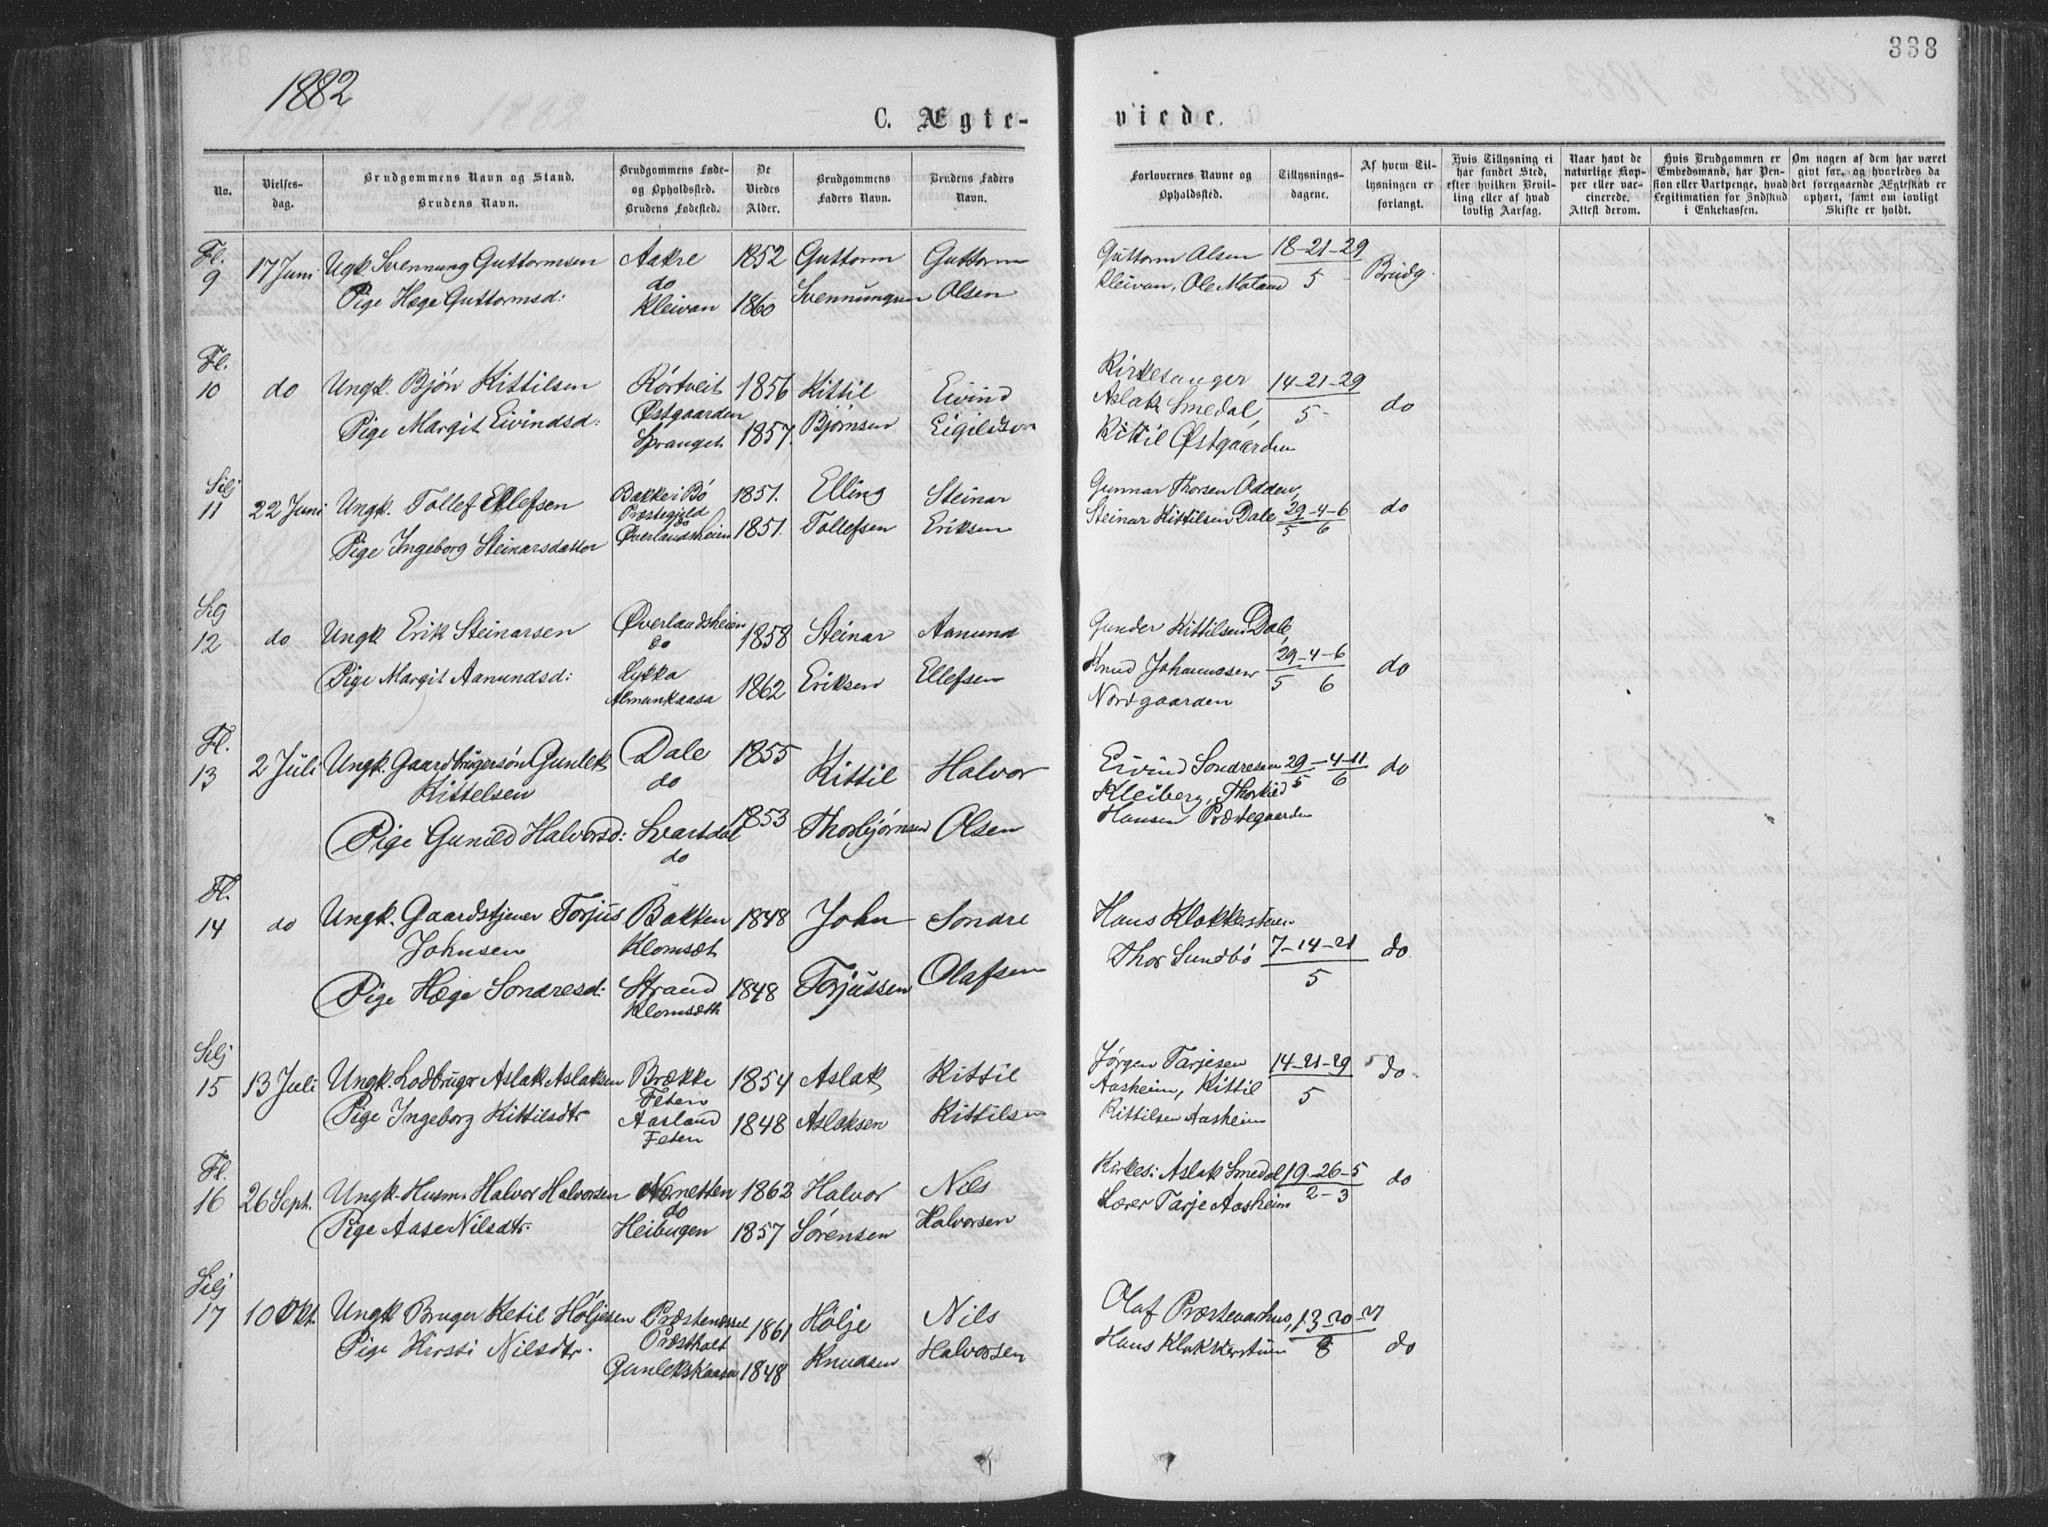 1882
C. Ægte-
viede.
338
No.
Vielses-
dag.
Brudgommens Navn og Stand.
Brudens Navn.
Brudgommens Føde-
og Opholdssted.
Brudens Fødested.
De
Viedes
Alder.
Brudgommens
Faders Navn.
Brudens Faders
Navn.
Forlovernes Navne og
Opholdssted.
Tillysnings-
dagene.
Af hvem Til-
lysningen er
forlangt.
Hvis Tillysning ei
har fundet Sted,
efter hvilken Bevil-
ling eller af hvad
lovlig Aarsag.
Naar havt de
naturlige Kop-
per eller vac-
cinerede.
Attest derom.
Hvis Brudgommen er
Embedsmand, har Pen-
sion eller Vartpenge, hvad
Legitimation for Indskud
i Enkekassen.
Om nogen af dem har været
gift før, og hvorledes da
det foregaaende Ægteskab er
ophørt, samt om lovligt
Skifte er holdt.
Fl.
9 17 Juni Ugk. Svennung Guttormsen Aakre 1852 Guttorm Guttorm Guttorm Olsen 18-21-29
do
Pige Hæge Guttormsd: Kleivan 1860 Svennungsen Olsen Kleivan, Ole Moland 5 Brudg.
Fl.
10 do Ungk. Bjön Kittilsen Körtveit 1856 Kittil Eivind Kirkesanger 14-21-29
Østgaarden Aslak Smedal, 5 do
Pige Margit Eivindsd: Spranget 1857. Bjørnsen Eigildsen Kittil Østgaarden
Silj
11 22 Juni Ungk. Tollef Ellefsen Bakke i Bö 1851. Elling Steinar Gunnar Thorsen Odden,
Præstegjeld Steinar Kittilsen Dale 29-4-6 do
do 5 6
Pige Ingeborg Steinarsdatter Øverlandsheim 1851. Tollefsen Eriksen
12 do Ungk Erik Steinarsen Øverlandsheim 1858 Steinar Aanund Gunder Kittilsen Dale,
do Knud Johannesen 29-4-6 do
Pige Margit Aanundsd: Lykka 1862 Eriksen Ellefsen 5 6
Almankaasa Nordgaarden
Fl.
13 2 Juli Ungk. Gaardbrugersön Gunlek Dale 1855 Kittil Halvor Eivind Sondresen 29-4-11 do
Kittelsen do Kleiberg, 5 6
Pige Gunild Halvorsd: Svartdal 1853 Thorbjørnsen Olsen Hansen Præstegaarden
do
Fl.
14 do Ungk. Gaardstjener Torjus Bakken 1848 John Sondre Hans Klokkerstuen
Johnsen Klomset Thor Sundbö 7-14-21 do
Pige Hæge Sondresd: Strand 1848 Torjussen Olafsen 5
Klomseth
Selj
15 13 Juli Ungk. Lodbruger Aslak Aslaksen Brække 1854 Aslak Kittil Jørgen Tarjesen 14-21-29 do
Feten Aasheim, Kittil 5
Pige Ingeborg Kittilsdtr Aasland 1848 Aslaksen Kittilsen Kittilsen Aasheim
Feten
Fl.
16 26 Sept. Ungk. Husm. Halvor Halvorsen 1862 Halvor Nils Kirkes: Aslak Smedal 19-26-5 do
do 2-3
Pige Aase Nilsdtr. Heibugen 1857 Sørensen Halvorsen Lærer Tarje Aasheim
Silj
17 10 Okt. Ungk Bruger Ketil Höljesen Præstenæsset 1861 Hölje Nils Olaf Præstevarhus, 13-20-27
Præstholt
Pige Kirsti Nilsdtr. Gunlekskaasa 1848 Knudsen Halvorsen Hans Klokkerstuen 8 do